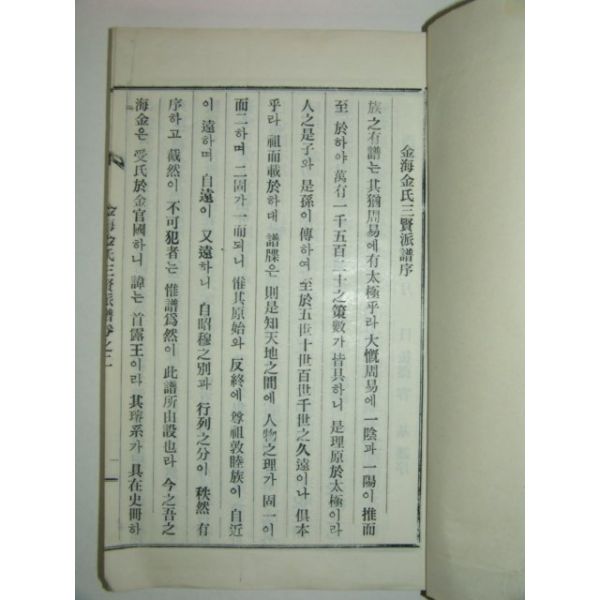 金海金氏三賢派譜序
族之有譜는 其猶周易에有太極乎라 大慨周易에 一陰과 一陽이 推而
至 於하야 萬有一千五百二十之策數가 皆具하니 是理原於太極이라
人之是子와 是孫이 傳하여 至於五世十世百世千世之久遠이나 俱本
乎라 祖而載於하대 譜牒은 則是知天地之間에 人物之理가 固一이
而二하며 二固가 一而되니 惟其原始와 反終에 尊祖敦睦族이 自近
이 遠하며 自遠이 又遠하니 自昭穆之別과 行列之分이 秩然 有
序하고 截然이 不可犯者는 惟譜爲然이 此譜所由設也라 今之吾之
海金은 受氏於金官國하니 諱는 首露王이라 其璿系가 具在史冊하
金海金氏三賢派譜卷之一